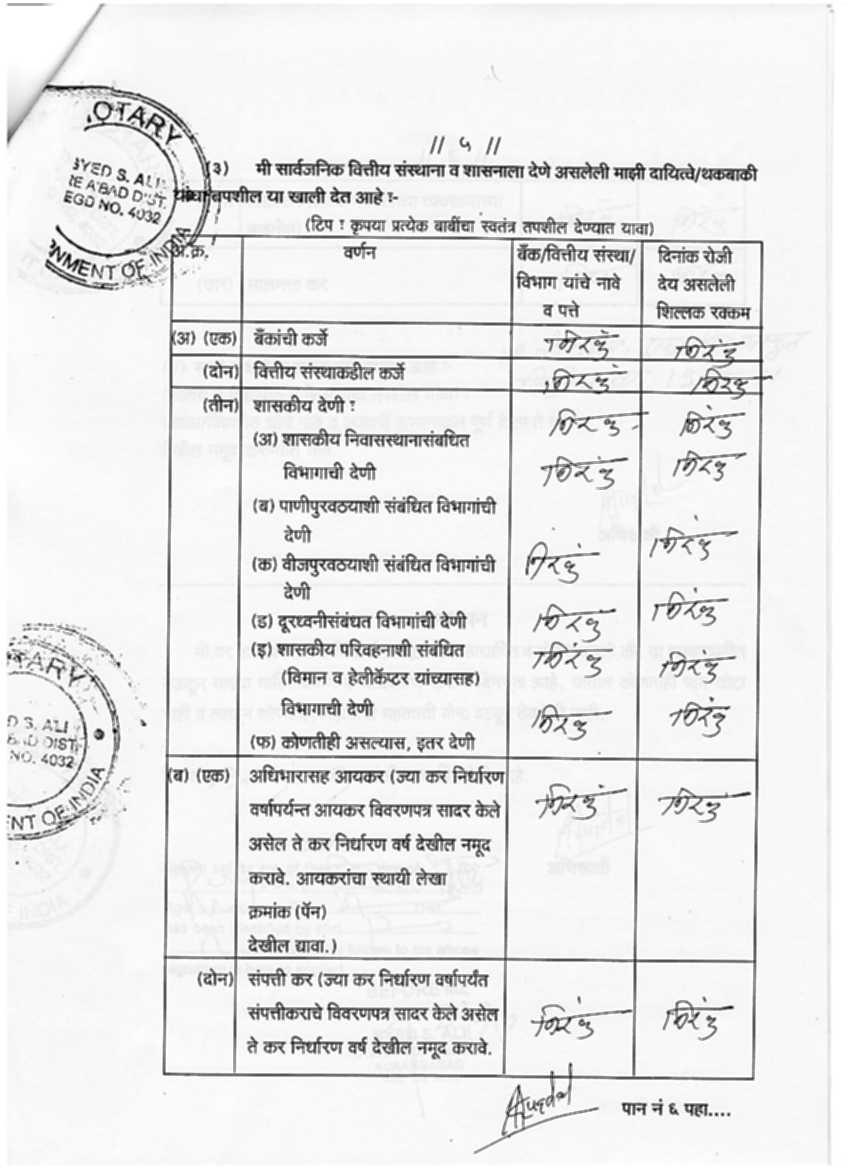 // ५ //
OTARY
SYED S. ALI
REGD NO. 4032
(३) मी सार्वजनिक वित्तीय संस्थाना व शासनाला देणे असलेली माझी दायित्वे/थकबाकी
तपशील या खाली देत आहे :-
(टिप : कृपया प्रत्येक बाबींचा स्वतंत्र तपशील देण्यात यावा)
NMENT OF IN
अ.क्र. वर्णन बँक/वित्तीय संस्था/ दिनांक रोजी
विभाग यांचे नावे देय असलेली
व पत्ते शिल्लक रक्कम
(अ) (एक) बँकांची कर्जे निरंक निरंक
(दोन) वित्तीय संस्थाकडील कर्जे निरंक निरंक
(तीन) शासकीय देणी : निरंक निरंक
(अ) शासकीय निवासस्थानासंबधित
विभागाची देणी निरंक निरंक
(ब) पाणीपुरवठयाशी संबंधित विभागांची
देणी निरंक
(क) वीजपुरवठयाशी संबंधित विभागांची निरंक
देणी
(ड) दूरध्वनीसंबंधत विभागांची देणी निरंक निरंक
(इ) शासकीय परिवहनाशी संबंधित निरंक निरंक
(विमान व हेलीकॅप्टर यांच्यासह)
विभागाची देणी निरंक निरंक
(फ) कोणतीही असल्यास, इतर देणी
TARY
D S. ALI
DIST
NO. 4032
ENT OF INDIA
(ब) (एक) अधिभारासह आयकर (ज्या कर निर्धारण
वर्षापर्यन्त आयकर विवरणपत्र सादर केले निरंक निरंक
असेल ते कर निर्धारण वर्ष देखील नमूद
करावे. आयकरांचा स्थायी लेखा
क्रमांक (पॅन)
देखील द्यावा.)
(दोन) संपत्ती कर (ज्या कर निर्धारण वर्षापर्यंत
संपत्तीकराचे विवरणपत्र सादर केले असेल निरंक निरंक
ते कर निर्धारण वर्ष देखील नमूद करावे.
पान नं ६ पहा....